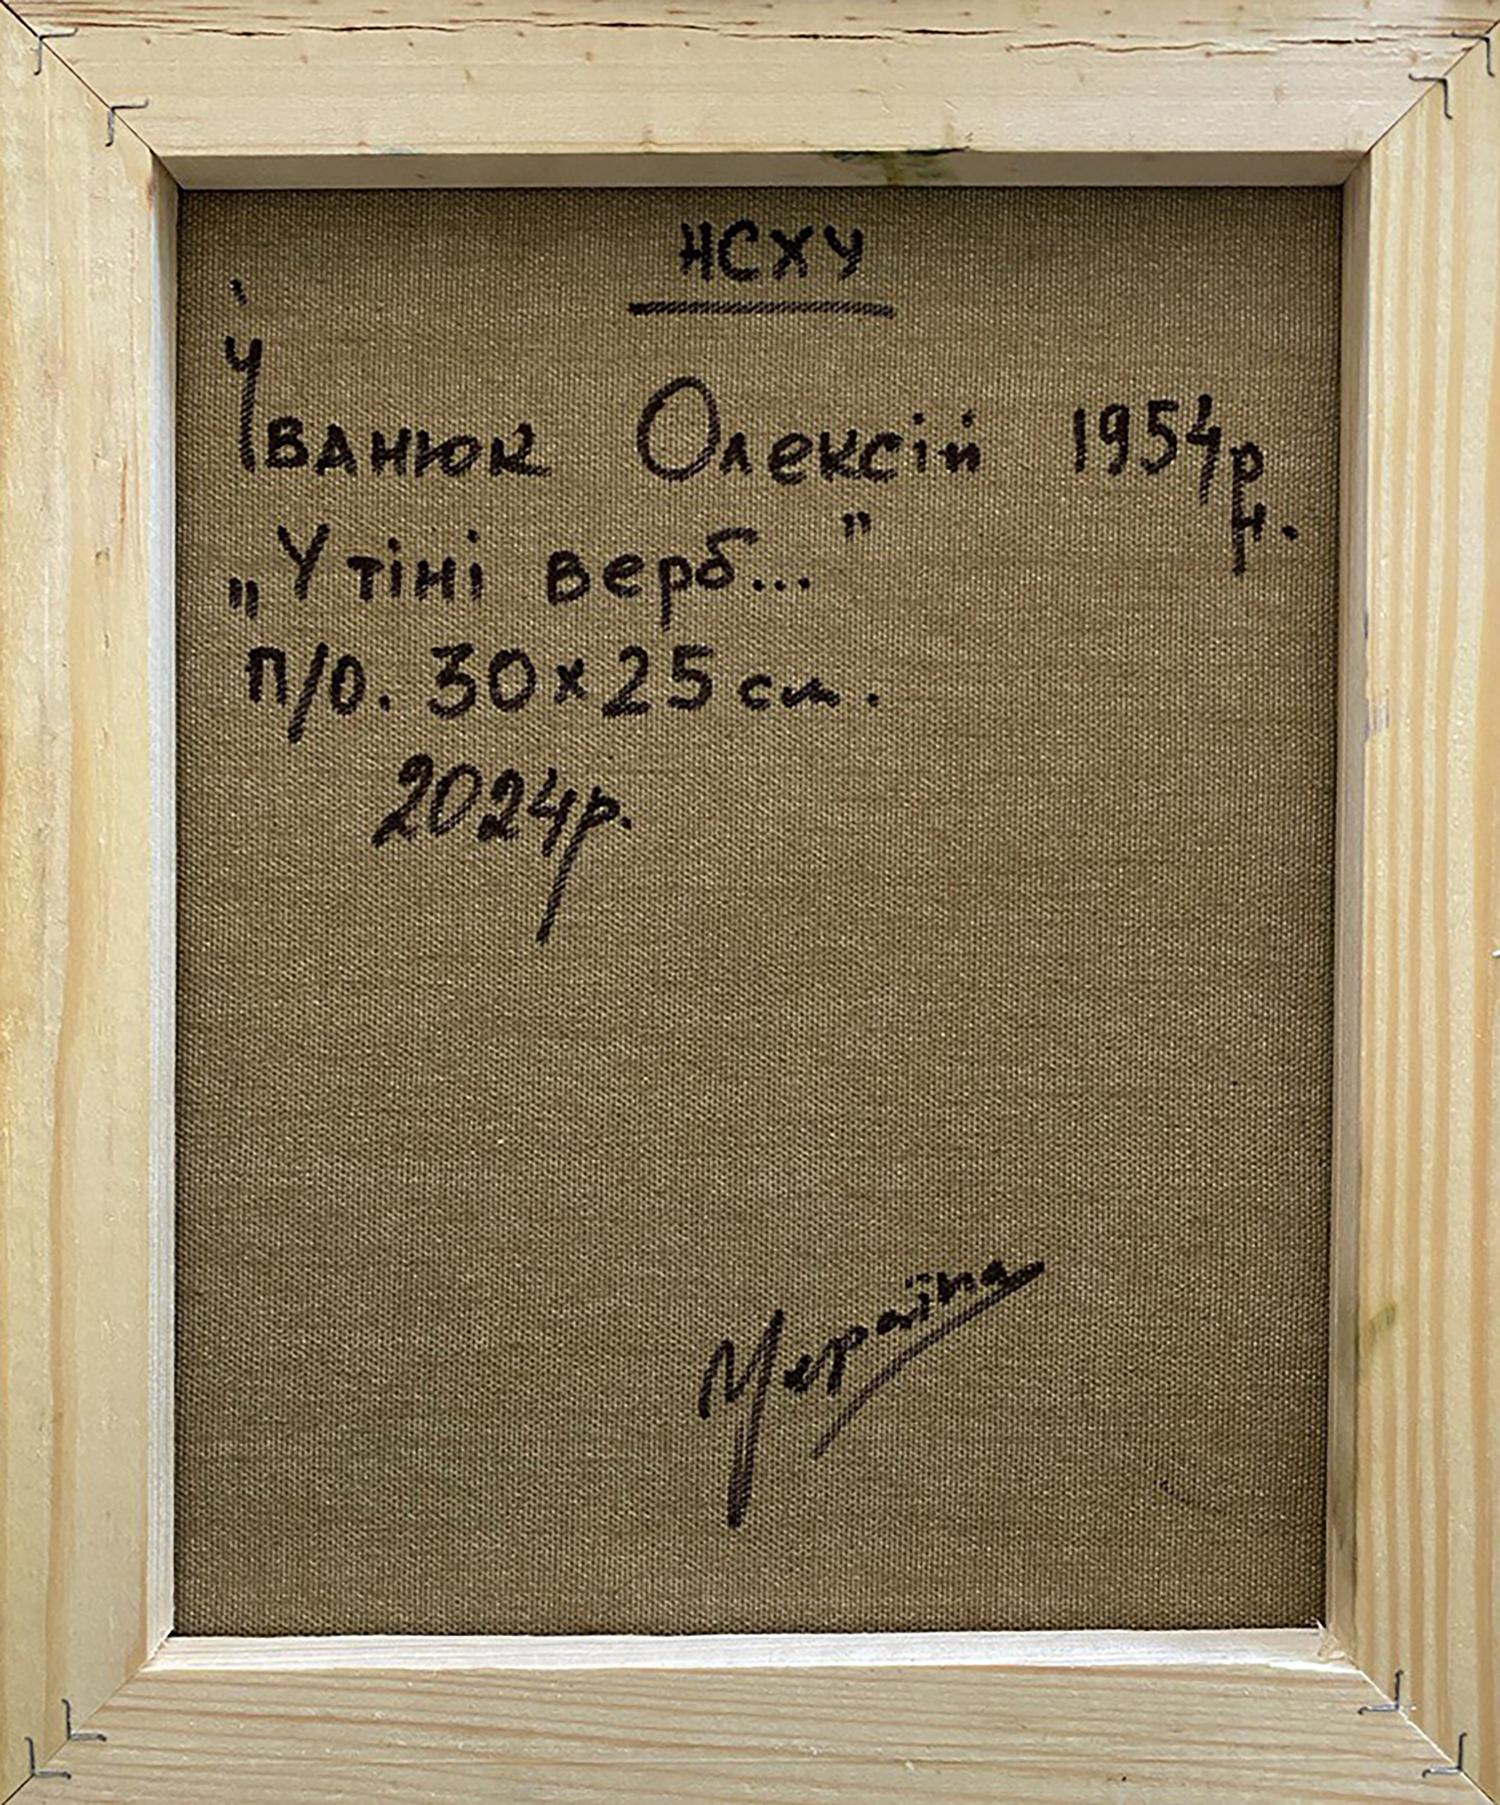 НСХУ
Іванюк Олексій 1954р
н.
„У тіні верб..."
п/о. 30×25 см.
2024р.
Україна